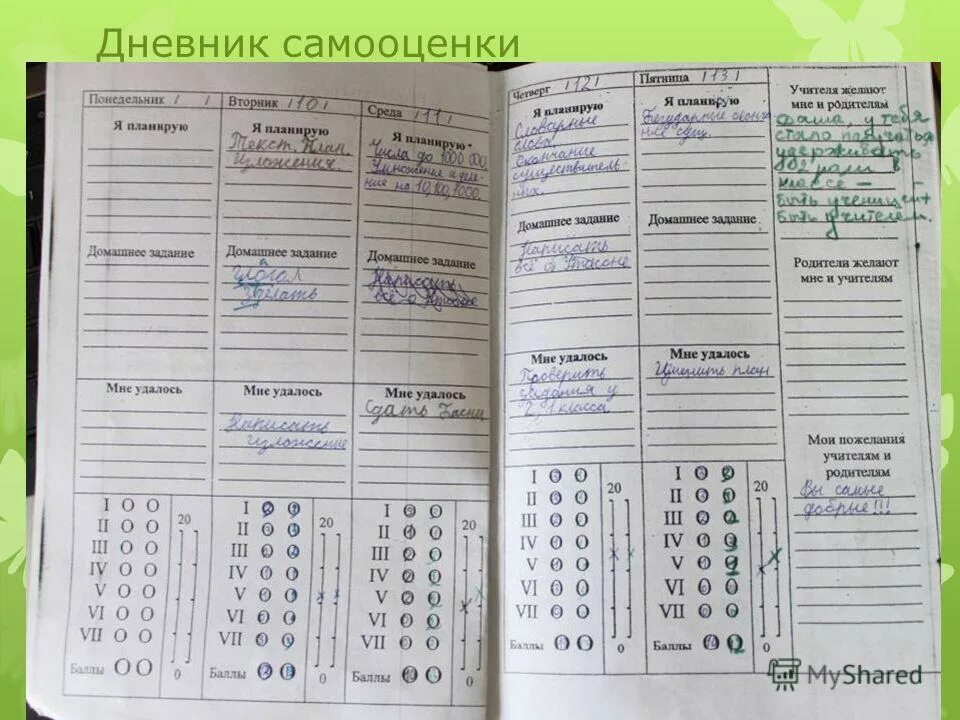 Дневник самооценки
Понедельник / /
Я планирую
Домашнее задание
Мне удалось
I
II
III
IV
V
VI
VII
20
0
Баллы
Вторник /10/
Я планирую
Текст. План.
Изложения.
Домашнее задание
Глагол
Сделать
Мне удалось
Написать
изложение
I
II
III
IV
V
VI
VII
20
0
Баллы
Среда /11/
Я планирую
Числа до 1000 000.
Умножение и деле-
ние на 10,100,1000.
Домашнее задание
Написать
всё о
Мне удалось
Сдать Басни
I
II
III
IV
V
VI
VII
20
0
Баллы
Четверг /12/
Я планирую
Словарные
слова.
Окончание
существитель-
ных.
Домашнее задание
Написать
всё о
Мне удалось
Проверить
задания у
2, 1 класса
I
II
III
IV
V
VI
VII
20
0
Баллы
Пятница /13/
Я планирую
Безударные оконча-
ние сущ.
Домашнее задание
Мне удалось
план
I
II
III
IV
V
VI
VII
20
0
Баллы
Учителя желают
мне и родителям
у тебя
стало получаться
удерживать
роли в
классе –
быть ученицей и
быть учителем.
Родители желают
мне и учителям
Мои пожелания
учителям и
родителям
Вы самые
добрые!!!
MyShared